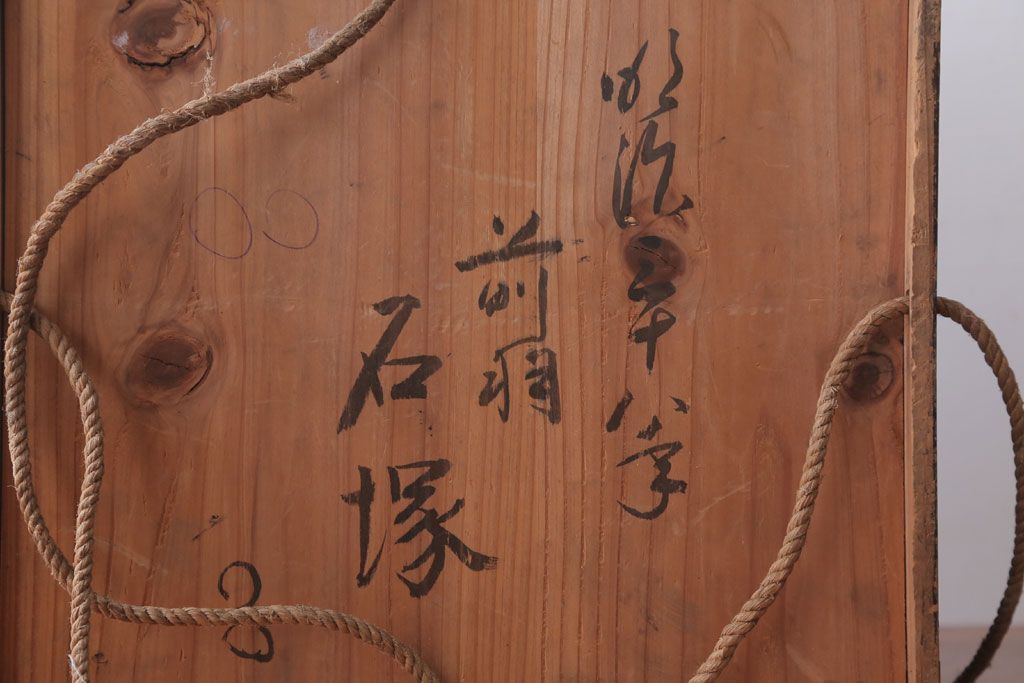 明治三十八年
前羽
石塚
8